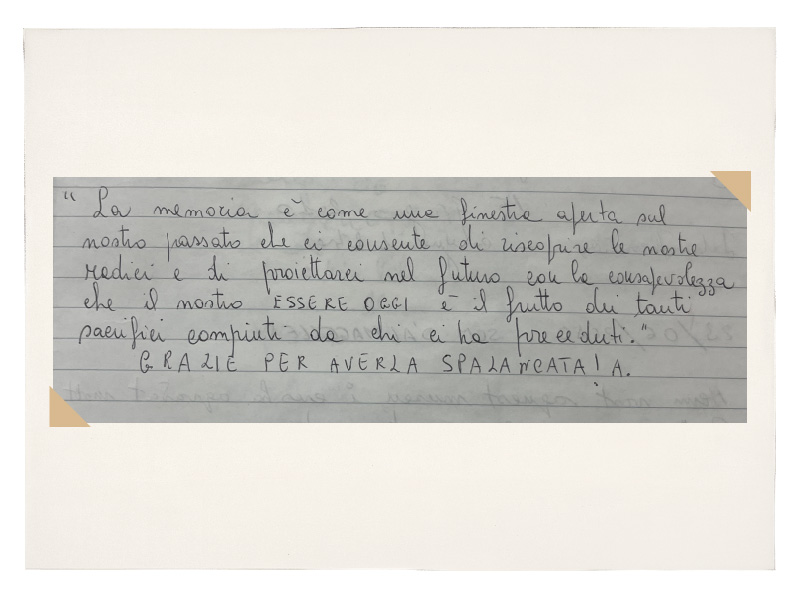 “ La memoria è come una finestra aperta sul
nostro passato che ci consente di riscoprire le nostre
radici e di proiettarci nel futuro con la consapevolezza
che il nostro ESSERE OGGI è il frutto dei tanti
sacrifici compiuti da chi ci ha preceduti.”
GRAZIE PER AVERLA SPALANCATA! A.